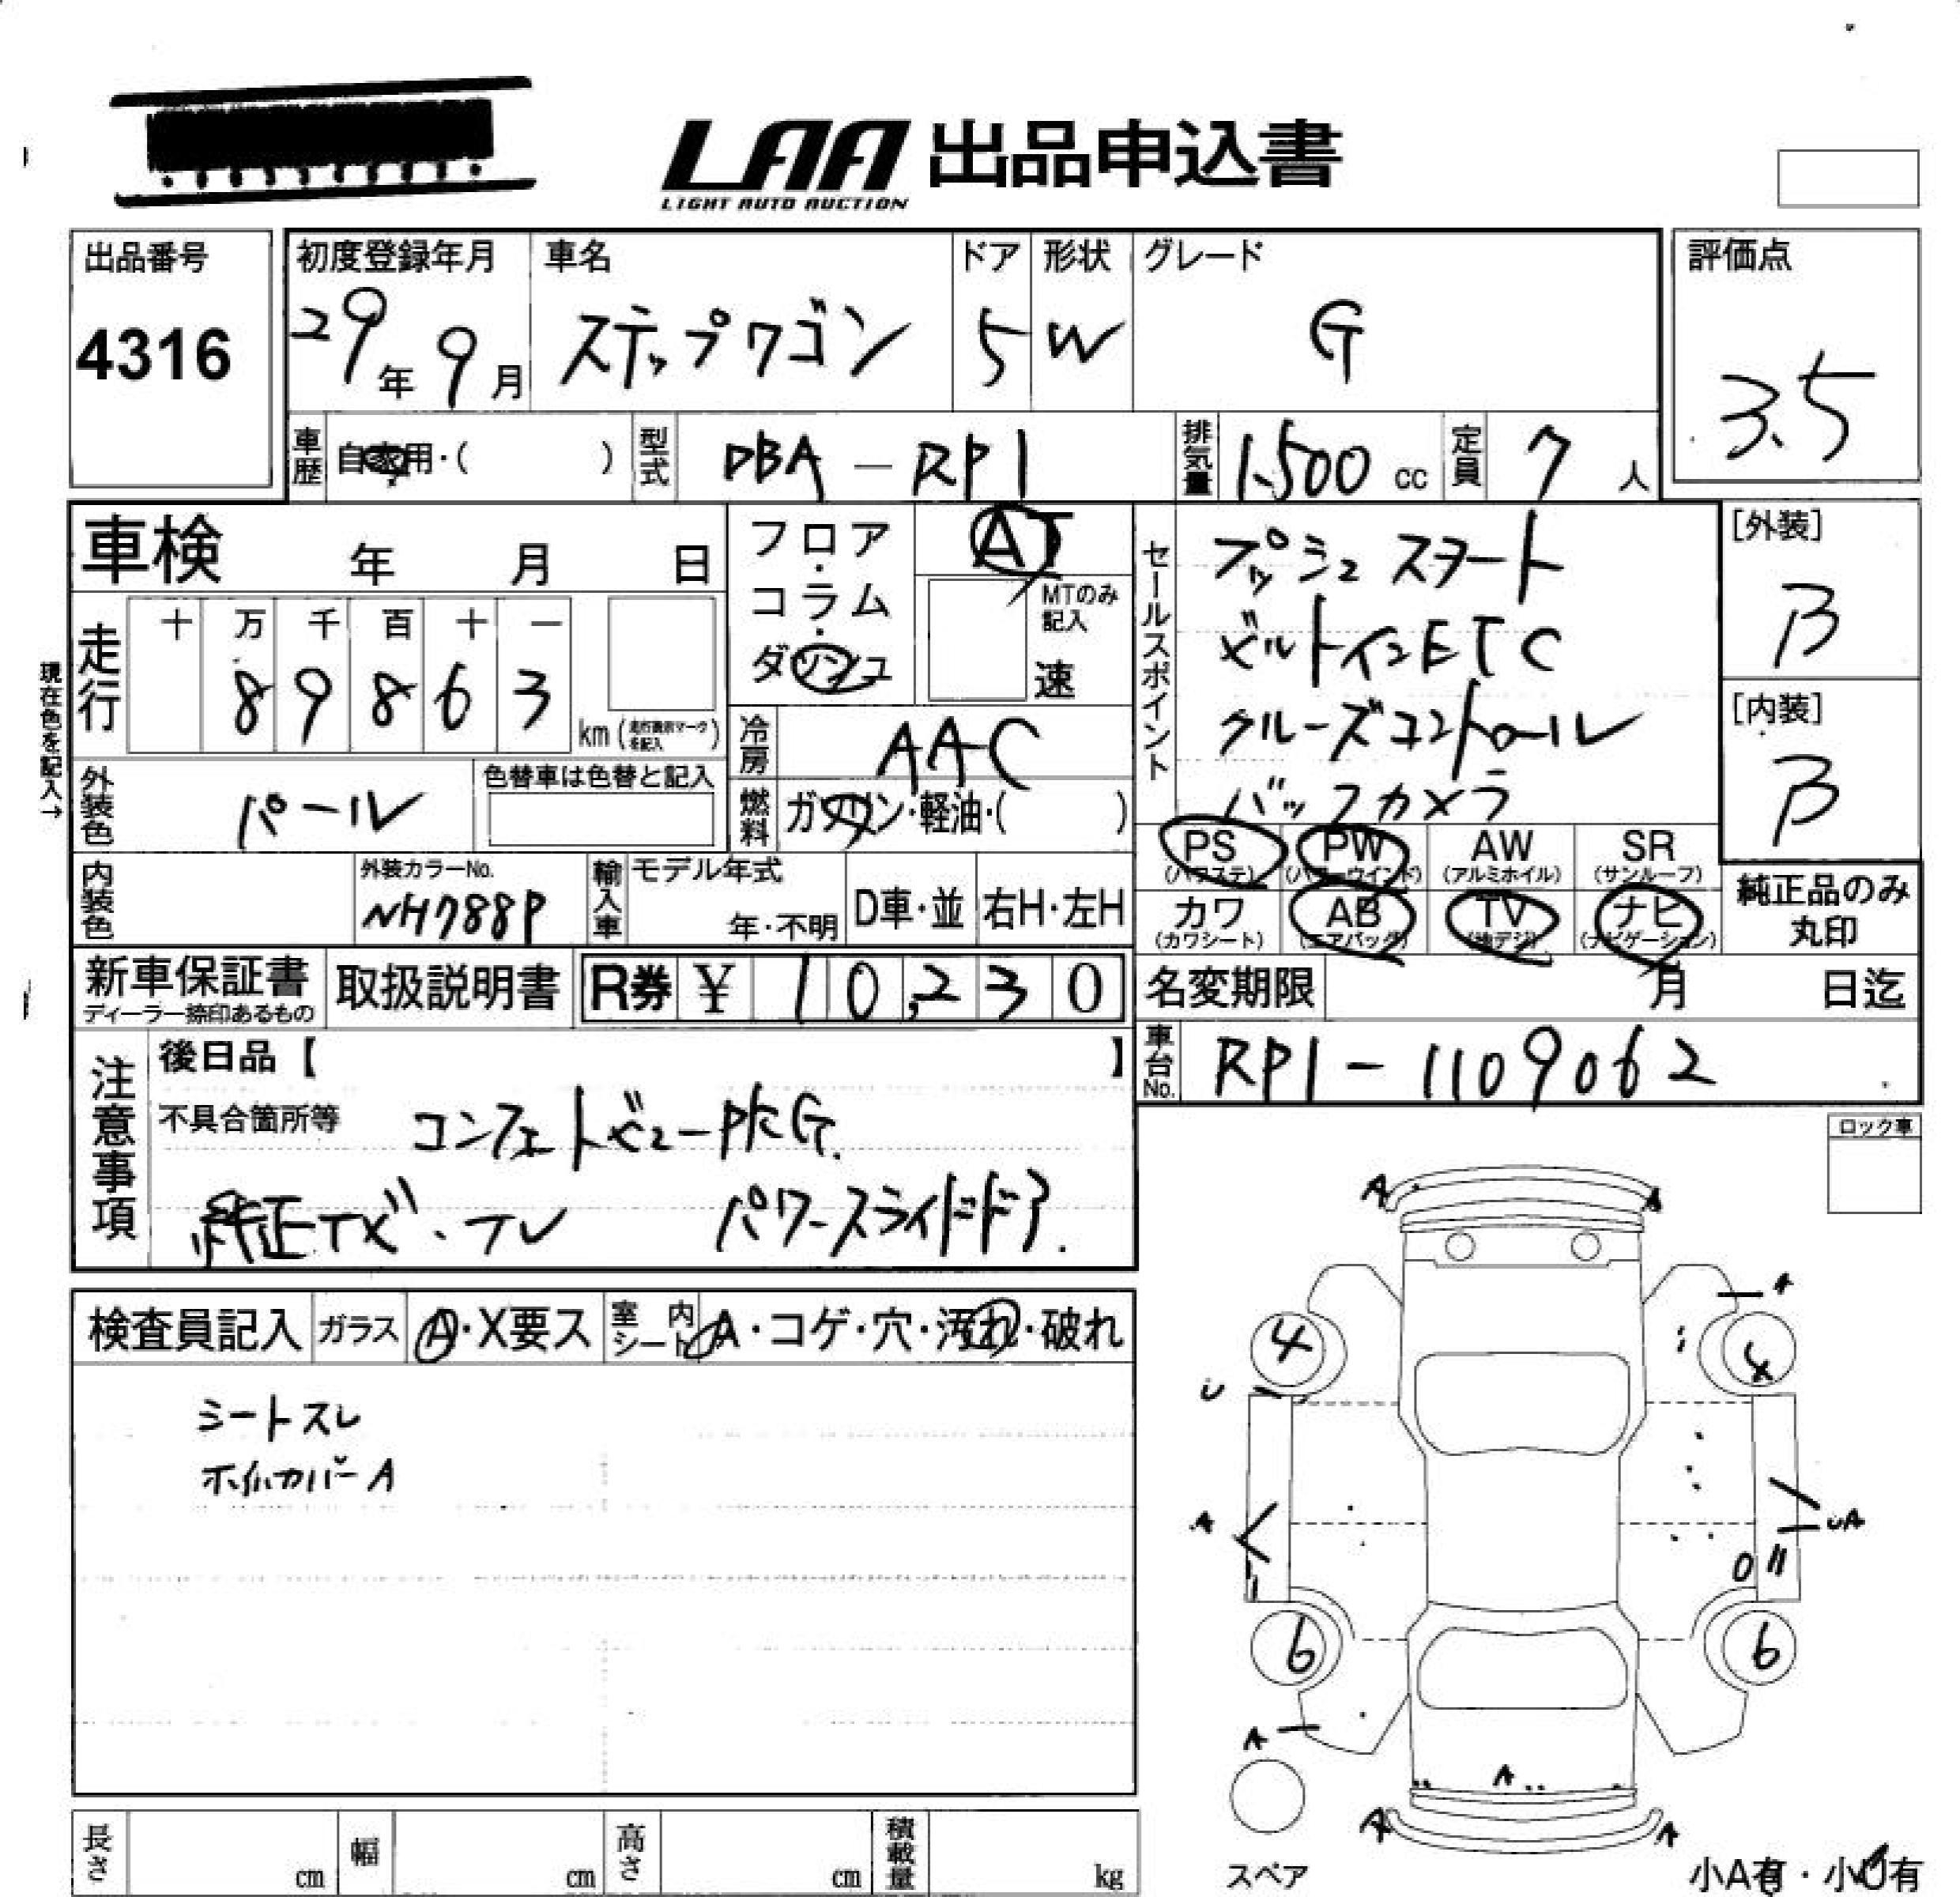 LAA 出品申込書
LIGHT AUTO AUCTION
出品番号 初度登録年月 車名 ドア 形状 グレード 評価点
4316 29年 9月 ステップワゴン 5 W G 3.5
車歴 自家用・( ) 型式 DBA-RP1 排気量 1.500 cc 定員 7 人
車検 年 月 日
フロア・コラム・ダッシュ
AT
MTのみ記入
速
セールスポイント
プッシュスタート
ビルトインETC
クルーズコントロール
バックカメラ
[外装]
B
[内装]
B
現在色を記入→
走行 十 万 千 百 十 一
8 9 8 6 3 km
冷房 AAC
外装色 パール 色替車は色替と記入
燃料 ガソリン・軽油・( )
PS PW AW SR
(パワステ) (パワーウインド) (アルミホイル) (サンルーフ)
カワ AB TV ナビ
(カワシート) (エアバッグ) (地デジ) (ナビゲーション)
純正品のみ
丸印
内装色 外装カラーNo. NH788P 輸入車 モデル年式 年・不明 D車・並 右H・左H
新車保証書 取扱説明書 R券 ¥ 10,230
ディーラー捺印あるもの
名変期限 月 日迄
車台No. RP1-1109062
注意事項
後日品【 】
不具合箇所等 コンフォートビューPKG.
純正ナビ・TV パワースライドドア.
ロック車
検査員記入 ガラス A・X要ス 室内シート A・コゲ・穴・汚れ・破れ
シートスレ
ホイルカバーA
A A
A
4 4
U
A UA
6 6
A
A
A A
スペア
小A有・小U有
長さ cm 幅 cm 高さ cm 積載量 kg